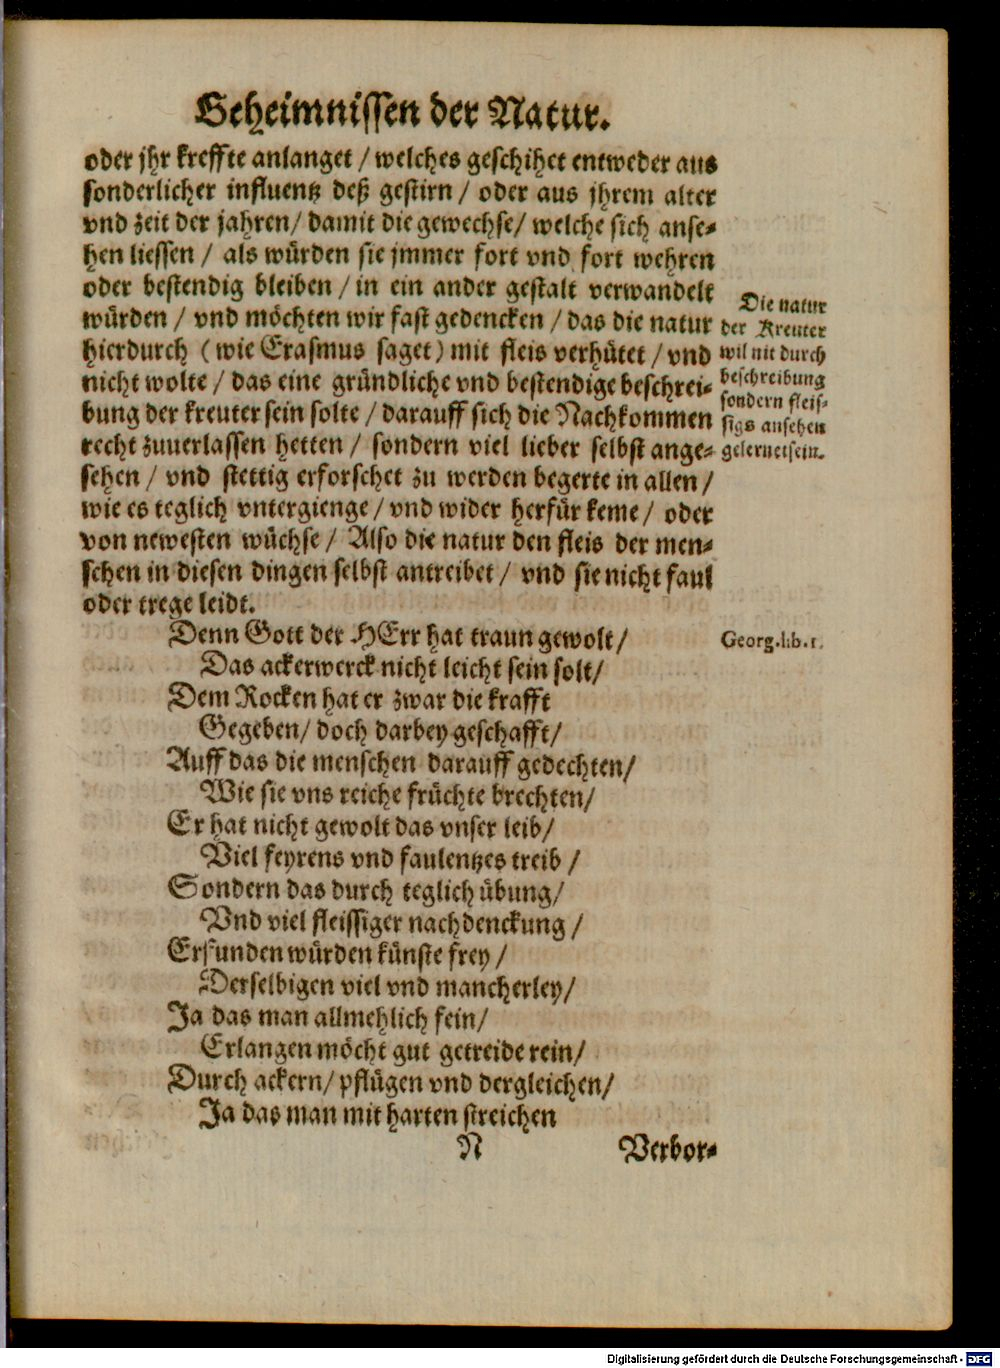 Geheimnissen der Natur.
oder jhr kreffte anlanget / welches geschihet entweder aus
sonderlicher influentz deß gestirn / oder aus jhrem alter
vnd zeit der jahren / damit die gewechse / welche sich anse-
hen liessen / als würden sie jmmer fort vnd fort wehren
oder bestendig bleiben / in ein ander gestalt verwandelt
würden / vnd möchten wir fast gedencken / das die natur
hierdurch (wie Erasmus saget) mit fleis verhütet / vnd
nicht wolte / das eine gründliche vnd bestendige beschrei-
bung der kreuter sein solte / darauff sich die Nachkommen
recht zuuerlassen hetten / sondern viel lieber selbst ange-
sehen / vnd stettig erforschet zu werden begerte in allen /
wie es teglich vntergienge / vnd wider herfür keme / oder
von newesten wüchse / Also die natur den fleis der men-
schen in diesen dingen selbst antreibet / vnd sie nicht faul
oder trege leidt.
Die natur
der Kreuter
wil nit durch
beschreibung
sondern fleis-
sigs ansehen
gelernet sein.
Denn Gott der HErr hat traun gewolt /
Georg. lib. 1.
Das ackerwerck nicht leicht sein solt /
Dem Rocken hat er zwar die krafft
Gegeben / doch darbey geschafft /
Auff das die menschen darauff gedechten /
Wie sie vns reiche früchte brechten /
Er hat nicht gewolt das vnser leib /
Viel feyrens vnd faulentzes treib /
Sondern das durch teglich übung /
Vnd viel fleissiger nachdenckung /
Erfunden würden künste frey /
Derselbigen viel vnd mancherley /
Ja das man allmehlich fein /
Erlangen möcht gut getreide rein /
Durch ackern / pflügen vnd dergleichen /
Ja das man mit harten streichen
N Verbor-
Digitalisierung gefördert durch die Deutsche Forschungsgemeinschaft - DFG